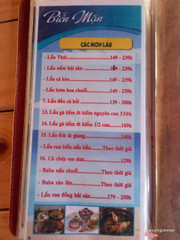 Biển Mặn
CÁC MÓN LẨU
- Lẩu Thái 149 - 239k
- Lẩu nấm hải sản 149 - 239k
- Lẩu cá kèo 149 - 239k
- Lẩu lươn hoa chuối 149 - 239k
7. Lẩu đầu cá hồi 139 - 200k
13. Lẩu gà tiềm ớt hiểm nguyên con 310k
14. Lẩu gà tiềm ớt hiểm 1/2 con 160k
15. Lẩu đũi là giang 145k
- Lẩu cua biển nấu bầu Theo thời giá
16. Cá chép om dưa 239k
- Baba nấu chuối Theo thời giá
- Baba xáo lăn Theo thời giá
- Lẩu cua đồng hải sản 179 - 250k